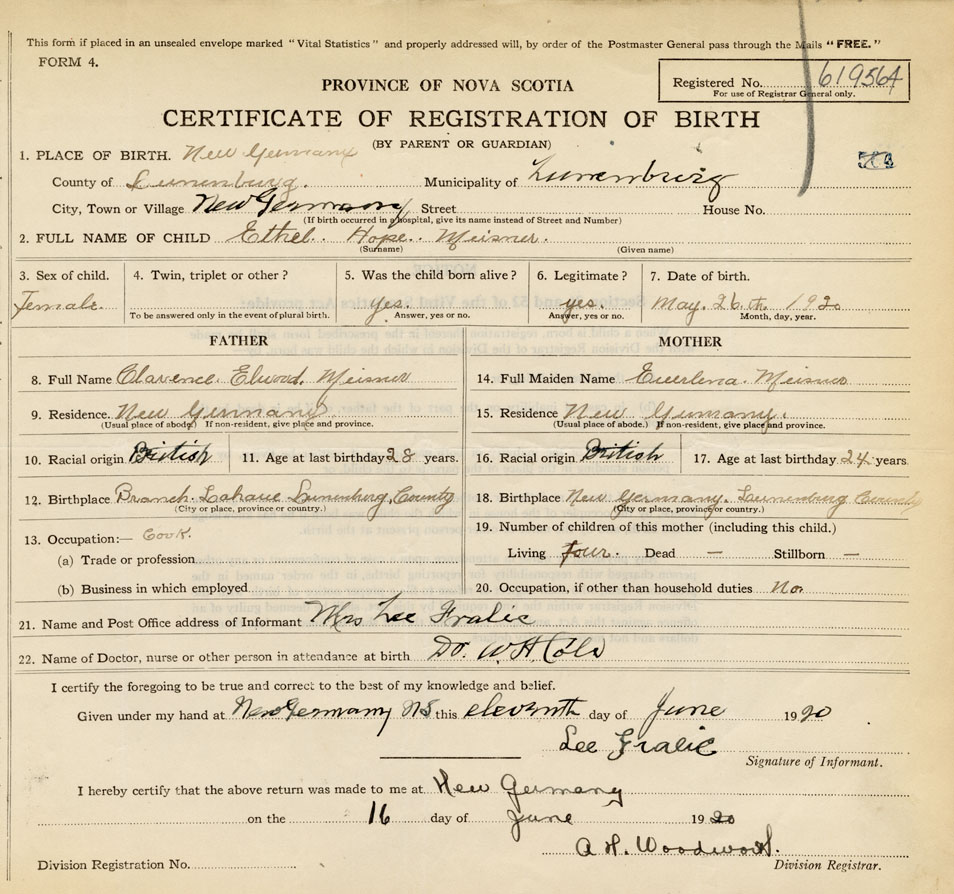 This form if placed in an unsealed envelope marked "Vital Statistics" and properly addressed will, by order of the Postmaster General pass through the Mails "FREE."
FORM 4.
Registered No. 619564
For use of Registrar General only.
PROVINCE OF NOVA SCOTIA
CERTIFICATE OF REGISTRATION OF BIRTH
(BY PARENT OR GUARDIAN)
1. PLACE OF BIRTH. New Germany
County of Lunenburg. Municipality of Lunenburg
City, Town or Village New Germany Street House No.
(If birth occurred in a hospital, give its name instead of Street and Number)
2. FULL NAME OF CHILD Ethel Hope Meisner.
(Surname) (Given name)
3. Sex of child. 4. Twin, triplet or other? 5. Was the child born alive? 6. Legitimate? 7. Date of birth.
Female. yes. yes. May. 26.th. 1920
To be answered only in the event of plural birth. Answer, yes or no. Answer, yes or no. Month, day, year.
FATHER MOTHER
8. Full Name Clarence Elwood Meisner 14. Full Maiden Name Meisner
9. Residence. New Germany 15. Residence New Germany.
(Usual place of abode) If non-resident, give place and province. (Usual place of abode.) If non-resident, give place and province.
10. Racial origin British 11. Age at last birthday 28 years. 16. Racial origin British 17. Age at last birthday 24 years
12. Birthplace Branch Lahave Lunenburg County 18. Birthplace New Germany. Lunenburg County
(City or place, province or country.) (City or place, province or country.)
13. Occupation:— Cook. 19. Number of children of this mother (including this child.)
(a) Trade or profession Living four. Dead — Stillborn —
(b) Business in which employed 20. Occupation, if other than household duties No.
21. Name and Post Office address of Informant Mrs Lee Fralic
22. Name of Doctor, nurse or other person in attendance at birth Dr. W H Cole
I certify the foregoing to be true and correct to the best of my knowledge and belief.
Given under my hand at New Germany NS this eleventh day of June 1920
Lee Fralic
Signature of Informant.
I hereby certify that the above return was made to me at New Germany
on the 16 day of June 1920
A H. Woodworth.
Division Registration No. Division Registrar.